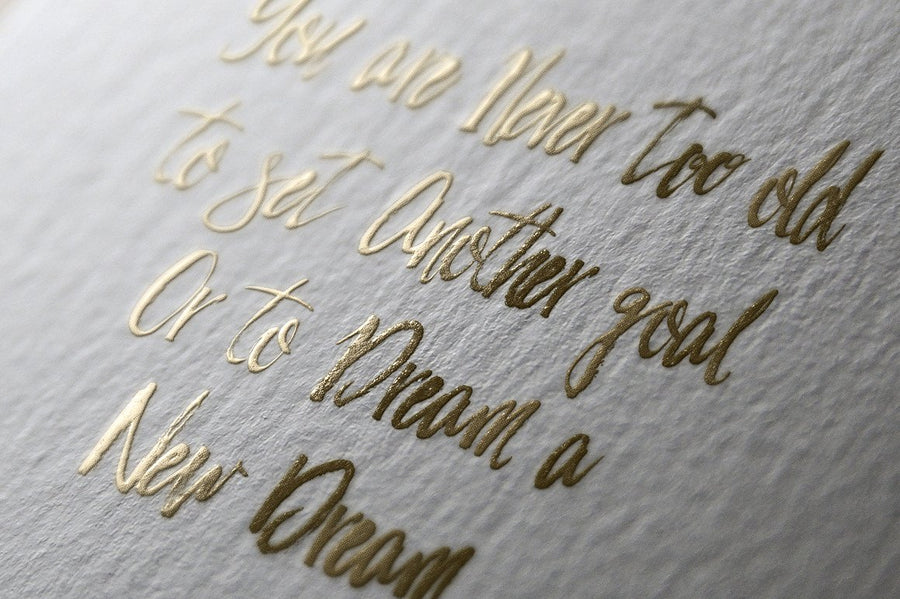 You are Never Too old
to set Another goal
Or to Dream a
New Dream